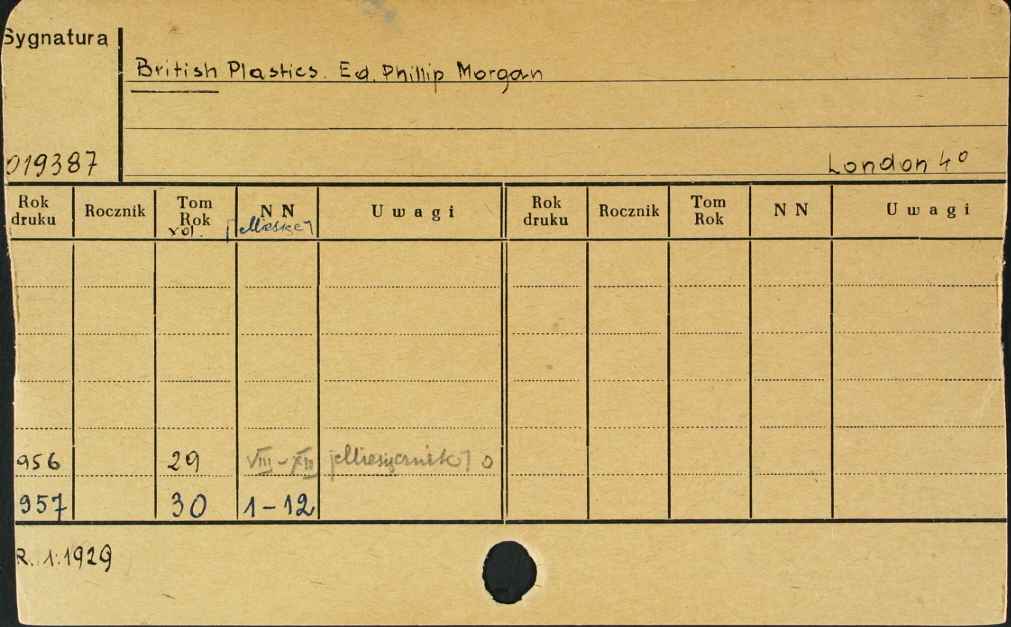 Sygnatura
British Plastics. Ed. Phillip Morgan
019387
London 4º
Rok druku Rocznik Tom Rok vol. N N Uwagi Rok druku Rocznik Tom Rok N N Uwagi
956 29 VIII-XII [Miesięcznik] o
957 30 1-12
R. 1:1929